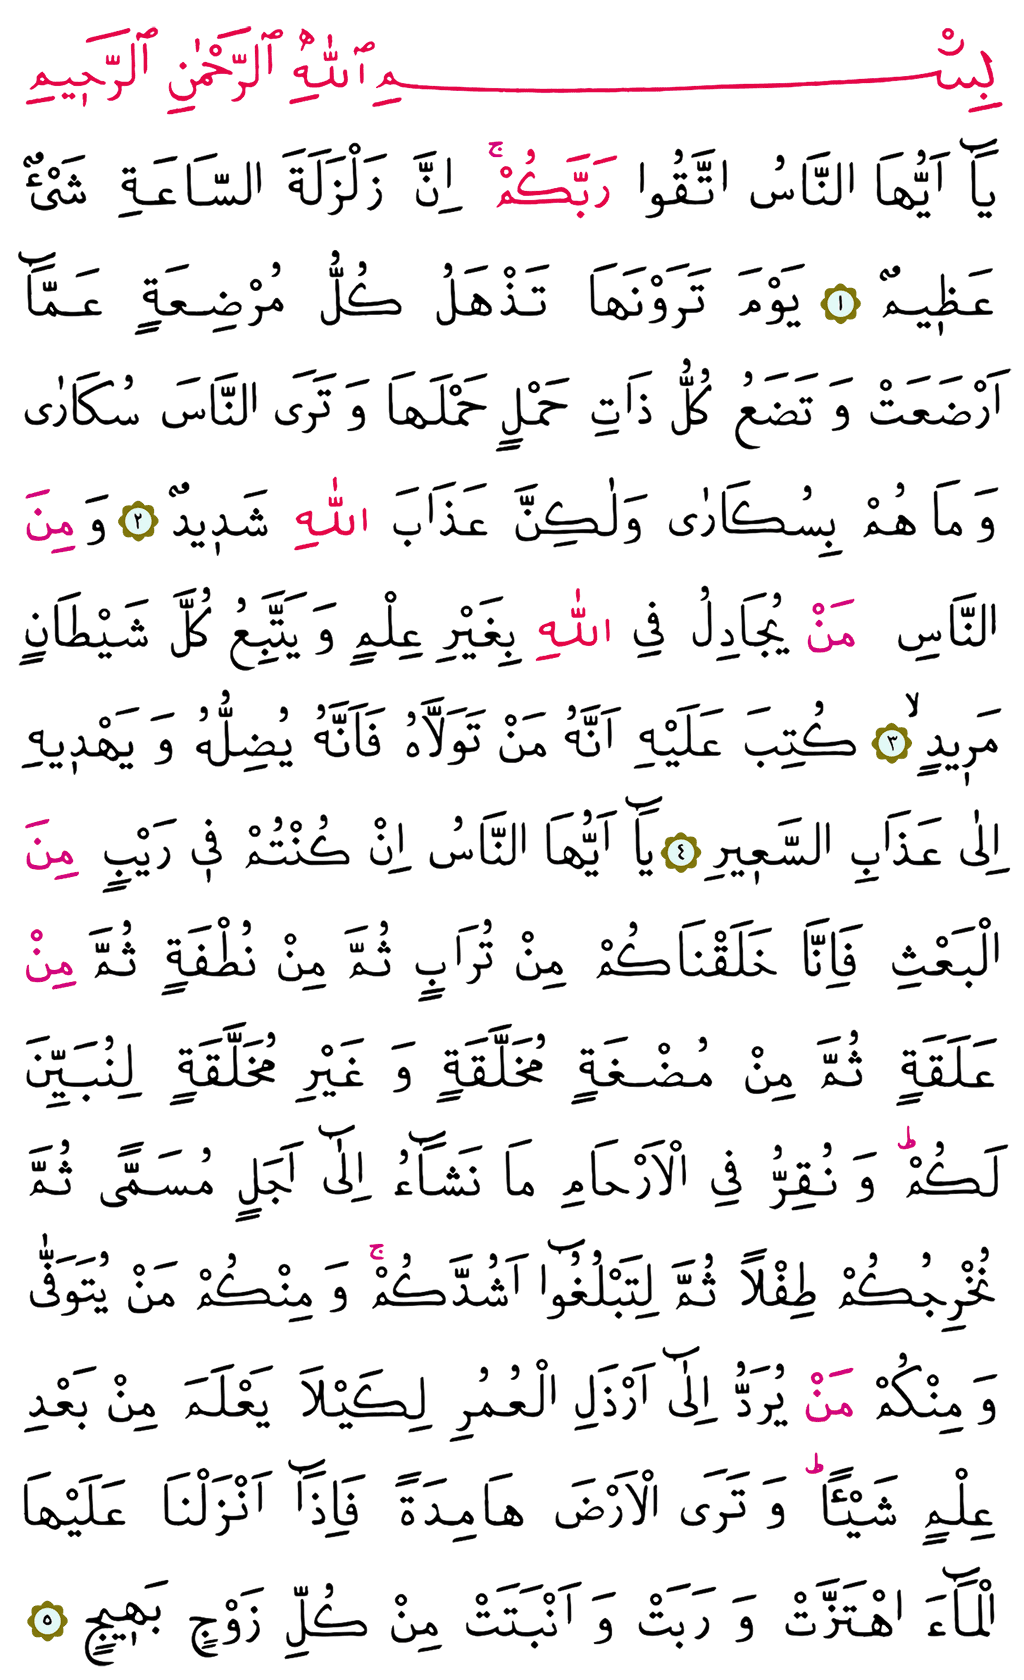 بِسْمِ ٱللّٰهِ ٱلرَّحْمٰنِ ٱلرَّح۪يمِ
يَٓا اَيُّهَا النَّاسُ اتَّقُوا رَبَّكُمْۚ اِنَّ زَلْزَلَةَ السَّاعَةِ شَيْءٌ
عَظ۪يمٌ ﴿١﴾ يَوْمَ تَرَوْنَهَا تَذْهَلُ كُلُّ مُرْضِعَةٍ عَمَّٓا
اَرْضَعَتْ وَ تَضَعُ كُلُّ ذَاتِ حَمْلٍ حَمْلَهَا وَ تَرَى النَّاسَ سُكَارٰى
وَ مَا هُمْ بِسُكَارٰى وَلٰكِنَّ عَذَابَ اللّٰهِ شَد۪يدٌ ﴿٢﴾ وَ مِنَ
النَّاسِ مَنْ يُجَادِلُ فِي اللّٰهِ بِغَيْرِ عِلْمٍ وَ يَتَّبِعُ كُلَّ شَيْطَانٍ
مَر۪يدٍۙ ﴿٣﴾ كُتِبَ عَلَيْهِ اَنَّهُ مَنْ تَوَلَّاهُ فَاَنَّهُ يُضِلُّهُ وَ يَهْد۪يهِ
اِلٰى عَذَابِ السَّع۪يرِ ﴿٤﴾ يَٓا اَيُّهَا النَّاسُ اِنْ كُنْتُمْ ف۪ي رَيْبٍ مِنَ
الْبَعْثِ فَاِنَّا خَلَقْنَاكُمْ مِنْ تُرَابٍ ثُمَّ مِنْ نُطْفَةٍ ثُمَّ مِنْ
عَلَقَةٍ ثُمَّ مِنْ مُضْغَةٍ مُخَلَّقَةٍ وَ غَيْرِ مُخَلَّقَةٍ لِنُبَيِّنَ
لَكُمْۜ وَ نُقِرُّ فِي الْاَرْحَامِ مَا نَشَٓاءُ اِلٰٓى اَجَلٍ مُسَمًّى ثُمَّ
نُخْرِجُكُمْ طِفْلًا ثُمَّ لِتَبْلُغُٓوا اَشُدَّكُمْۚ وَ مِنْكُمْ مَنْ يُتَوَفّٰى
وَ مِنْكُمْ مَنْ يُرَدُّ اِلٰٓى اَرْذَلِ الْعُمُرِ لِكَيْلَا يَعْلَمَ مِنْ بَعْدِ
عِلْمٍ شَيْـًٔاۜ وَ تَرَى الْاَرْضَ هَامِدَةً فَاِذَٓا اَنْزَلْنَا عَلَيْهَا
الْمَٓاءَ اهْتَزَّتْ وَ رَبَتْ وَ اَنْبَتَتْ مِنْ كُلِّ زَوْجٍ بَه۪يجٍ ﴿٥﴾